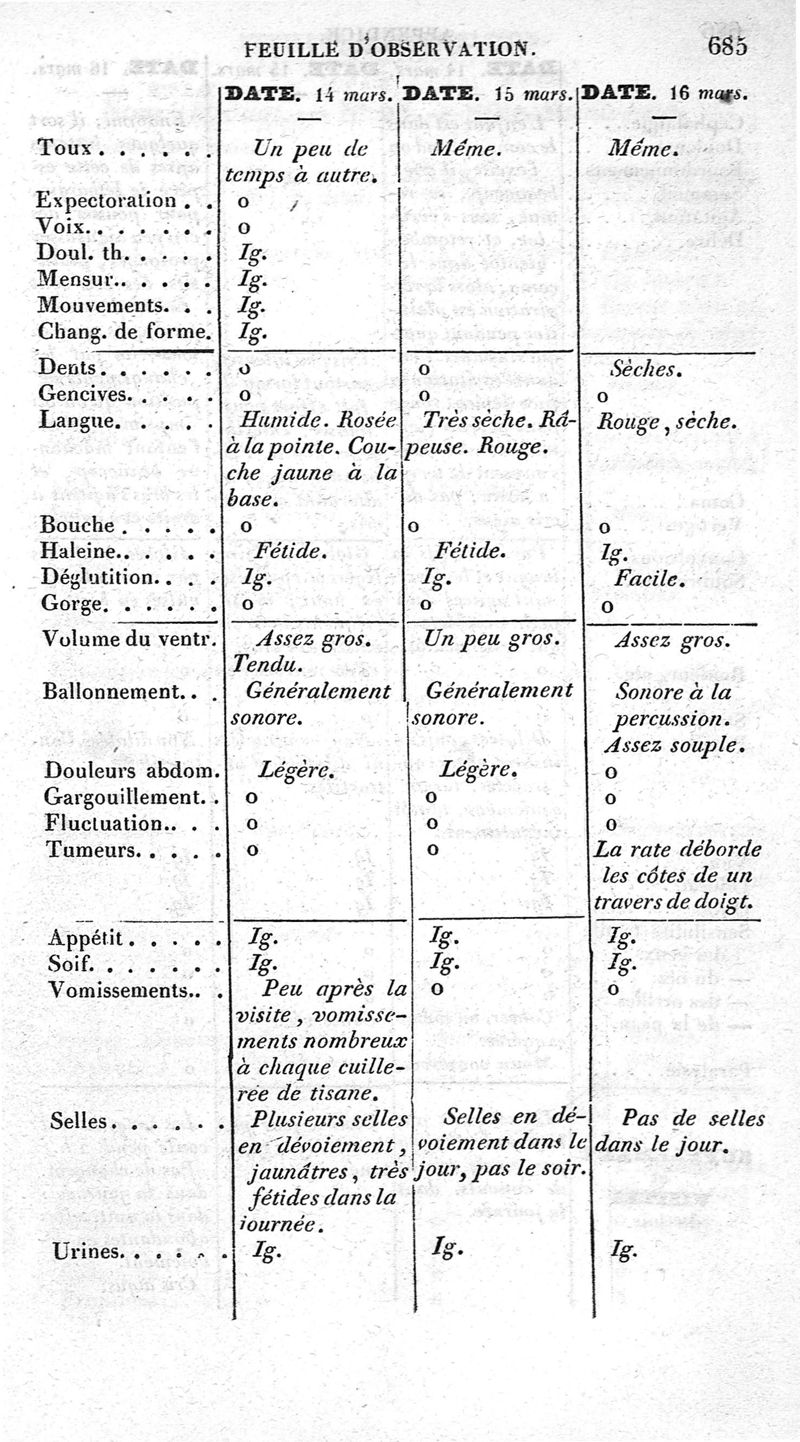 FEUILLE D'OBSERVATION. 685
DATE. 14 mars. DATE. 15 mars. DATE. 16 mars.
Toux . . . . . . Un peu de Même. Même.
temps à autre.
Expectoration . . o
Voix. . . . . . . o
Doul. th. . . . . . Ig.
Mensur.. . . . . Ig.
Mouvements. . . Ig.
Chang. de forme. Ig.
Dents. . . . . . o o Sèches.
Gencives. . . . . o o o
Langue. . . . . . Humide. Rosée Très sèche. Râ- Rouge, sèche.
à la pointe. Cou- peuse. Rouge.
che jaune à la
base.
Bouche . . . . . o o o
Haleine.. . . . . Fétide. Fétide. Ig.
Déglutition. . . . Ig. Ig. Facile.
Gorge. . . . . . o o o
Volume du ventr. Assez gros. Un peu gros. Assez gros.
Tendu.
Ballonnement. . . Généralement Généralement Sonore à la
sonore. sonore. percussion.
Assez souple.
Douleurs abdom. Légère. Légère. o
Gargouillement. . o o o
Fluctuation.. . . o o o
Tumeurs. . . . . o o La rate déborde
les côtes de un
travers de doigt.
Appétit . . . . . Ig. Ig. Ig.
Soif. . . . . . . Ig. Ig. Ig.
Vomissements.. . Peu après la o o
visite, vomisse-
ments nombreux
à chaque cuille-
rée de tisane.
Selles. . . . . . Plusieurs selles Selles en dé- Pas de selles
en dévoiement, voiement dans le dans le jour.
jaunâtres, très jour, pas le soir.
fétides dans la
journée.
Urines. . . . . . Ig. Ig. Ig.